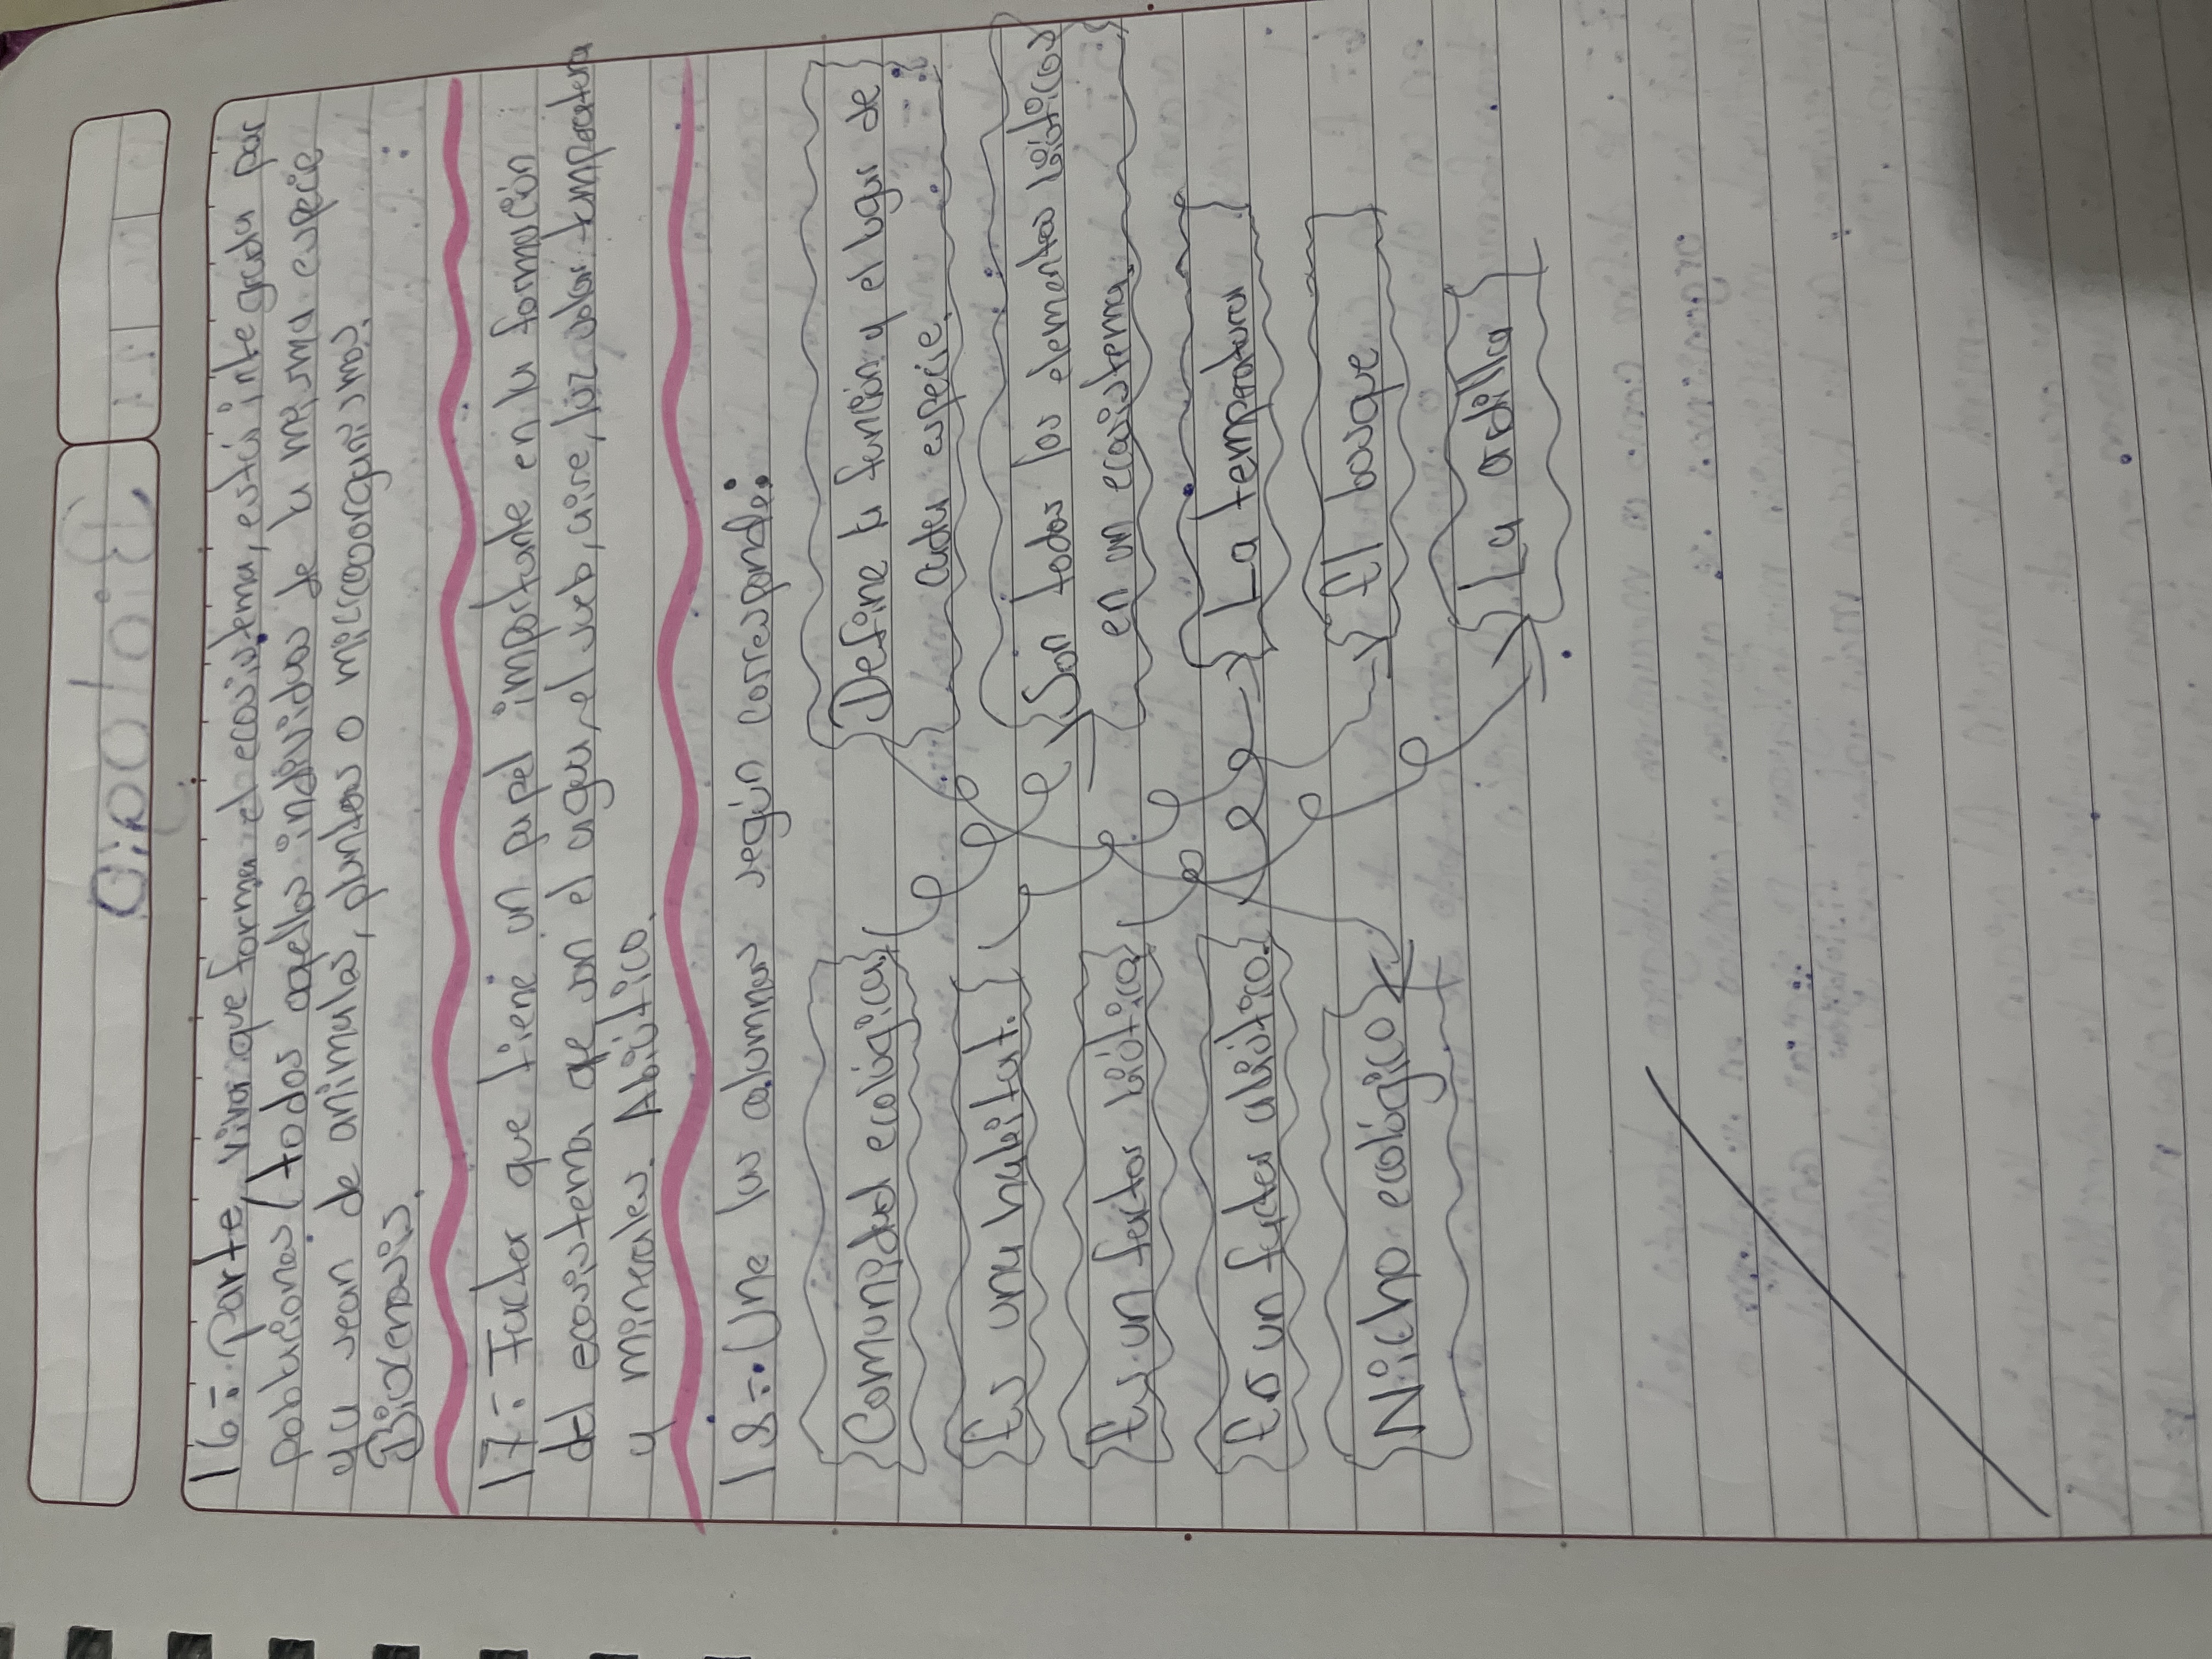 16.- Parte viva que forma el ecosistema, está integrada por
poblaciones (todos aquellos individuos de la misma especie
ya sean de animales, plantas o microoorganismos.
Biocenosis.
17.- Factor que tiene un papel importante en la formación
del ecosistema que son el agua, el
aire, luz solar temperatura
y minerales. Abiótico.
18.- Une las columnas según corresponde:
Comunidad ecológica
Es una habitat.
Es un factor biótico
Es un factor abiótico.
Nicho ecológico
Define la función y el lugar de
cada especie.
Son todos los elementos bióticos
en un ecosistema
La temperatura
El bosque
La ardilla